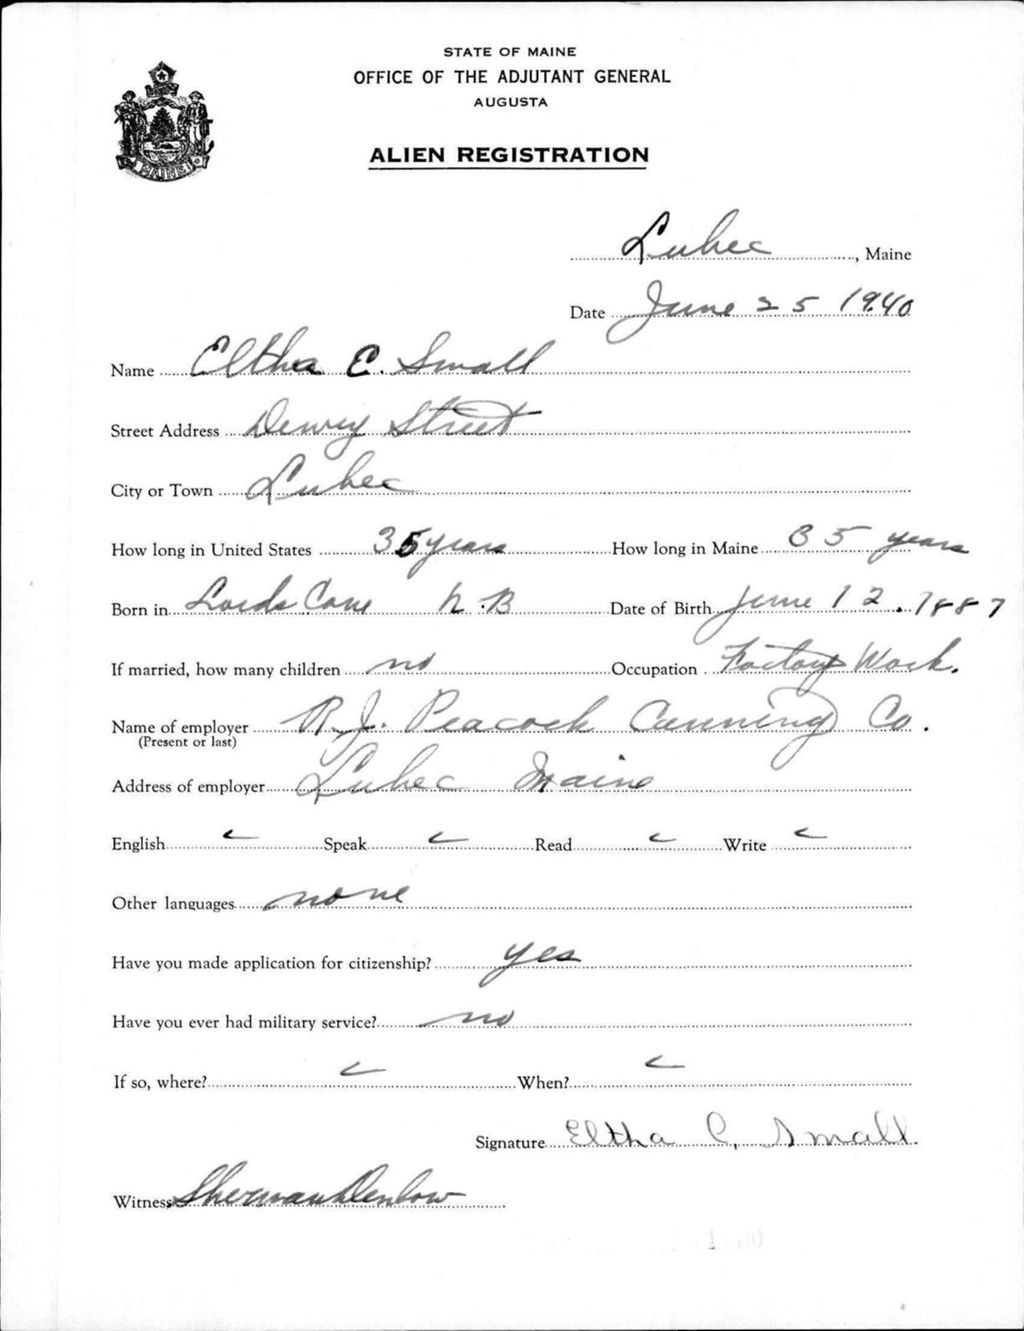 STATE OF MAINE
OFFICE OF THE ADJUTANT GENERAL
AUGUSTA
ALIEN REGISTRATION
MAINE
Lubec, Maine
Date June 25 1940
Name Eltha C. Small
Street Address Dewey Street
City or Town Lubec
How long in United States 35 years How long in Maine 35 years
Born in Lords Cove N.B Date of Birth June 12. 1887
If married, how many children no Occupation Factory Work.
Name of employer R.J. Peacock Canning Co.
(Present or last)
Address of employer Lubec Maine
English ✓ Speak ✓ Read ✓ Write ✓
Other languages none
Have you made application for citizenship? yes
Have you ever had military service? no
If so, where? ✓ When? ✓
Signature Eltha C. Small
Witness Sherman Denbow